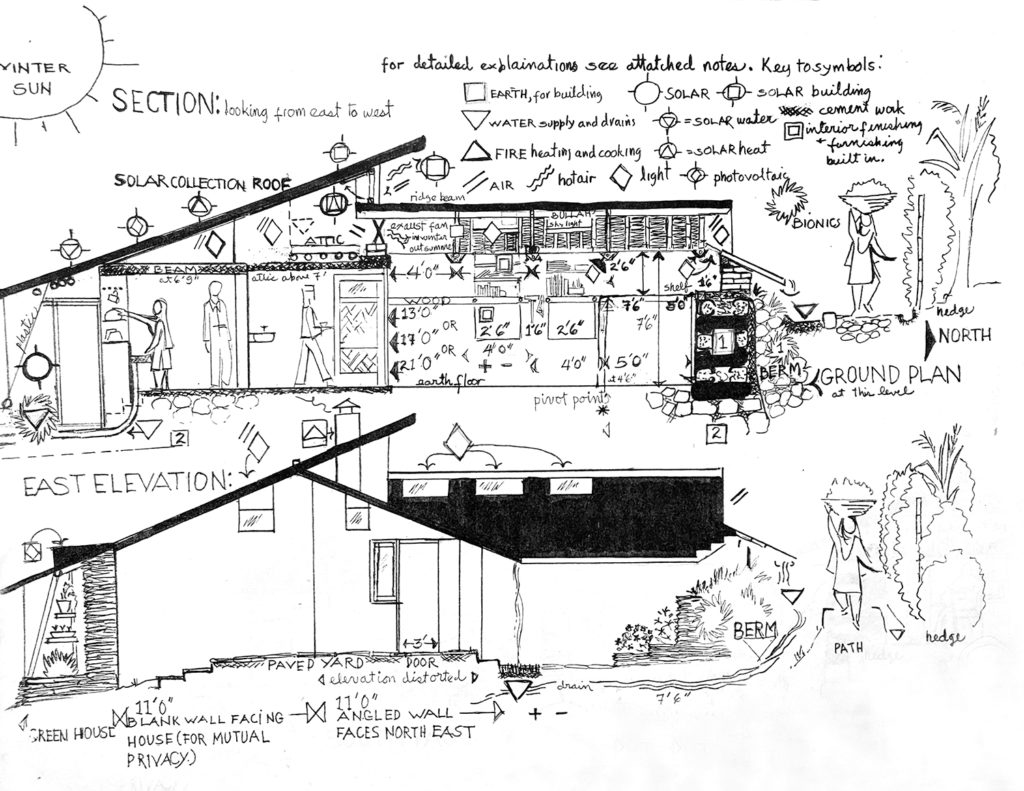 WINTER
SUN
SECTION: looking from east to west
for detailed explainations see attatched notes. Key to symbols:
EARTH, for building
SOLAR
SOLAR building
WATER supply and drains
= SOLAR water
cement work
interior finishing
+ furnishing
built in.
FIRE heating and cooking
= SOLAR heat
AIR
hot air
light
photovoltaic
SOLAR COLLECTION ROOF
ridge beam
BIONICS
exaust fan
in winter
out summer
skylight
ATTIC
BEAM
at 6'9"
attic above 7'
4'0"
2'6"
shelf
1'6"
WOOD
13'0"
OR
17'0"
OR
21'0"
earth floor
2'6"
1'6"
2'6"
4'0"
+ -
4'0"
7'6"
7'6"
5'0"
5'0"
pivot point
1
1
BERM
hedge
NORTH
GROUND PLAN
at this level
2
2
EAST ELEVATION:
3'
PAVED YARD
DOOR
elevation distorted
BERM
drain
7'6"
PATH
hedge
GREEN HOUSE
11'0"
BLANK WALL FACING
HOUSE (FOR MUTUAL
PRIVACY.)
11'0"
ANGLED WALL
FACES NORTH EAST
+ -